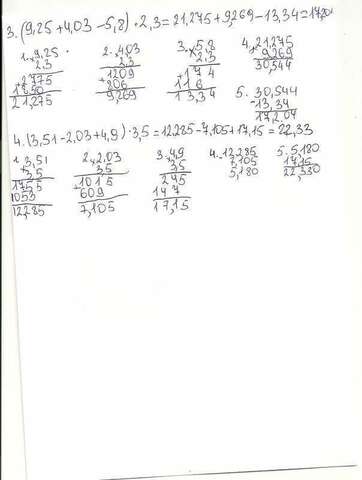 3. (9,25 + 4,03 - 5,8) · 2,3 = 21,275 + 9,269 - 13,34 = 17,204
1. 9,25 2. 4,03 3. 5,8 4. 21,275
× 2,3 2,3 × 2,3 9,269
2775 + 1209 + 174 30,544
1850 806 116 5. 30,544
21,275 9,269 13,34 - 13,34
17,204
4. (3,51 - 2,03 + 4,9) · 3,5 = 12,285 - 7,105 + 17,15 = 22,33
1. 3,51 2. 2,03 3. 4,9 4. 12,285 5. 5,180
× 3,5 × 3,5 3,5 7,105 17,15
1755 + 1015 245 5,180 22,330
1053 609 147
12285 7,105 17,15